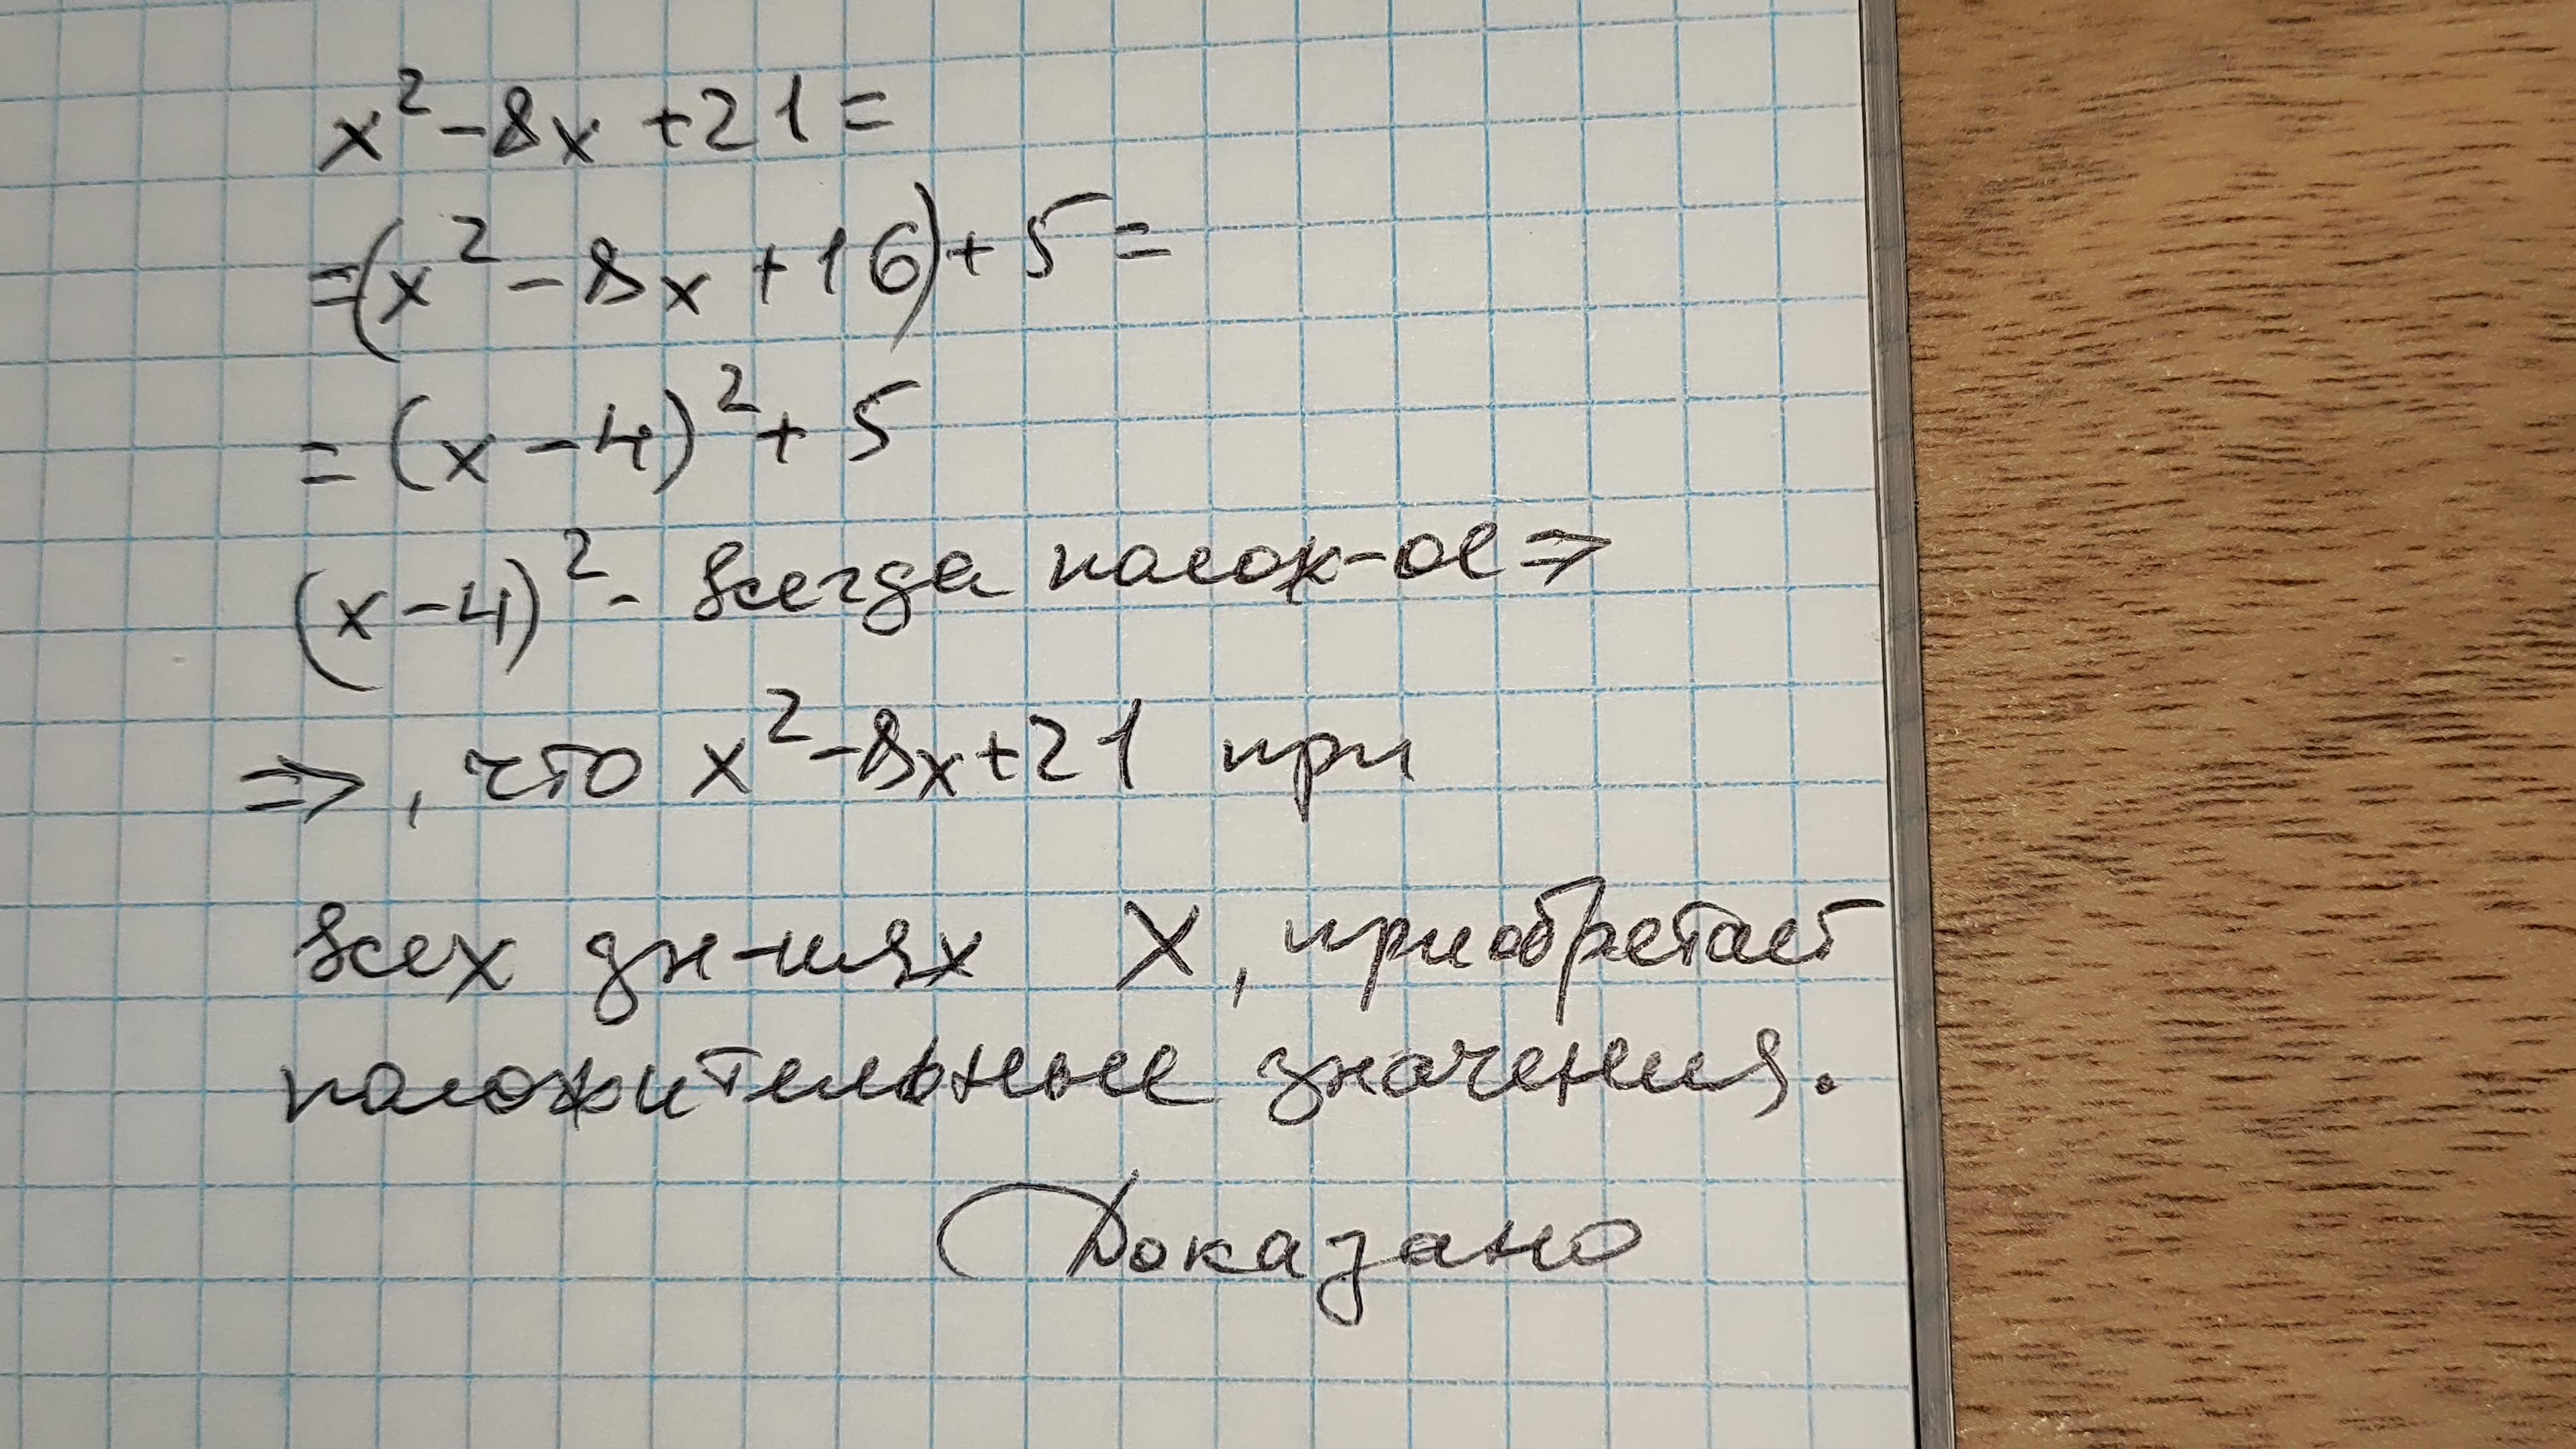 x² - 8x + 21 =
= (x² - 8x + 16) + 5 =
= (x - 4)² + 5
(x - 4)² - всегда полож-ое ⇒
⇒, что x² - 8x + 21 при
всех зн-иях X, приобретает
положительные значения.
Доказано